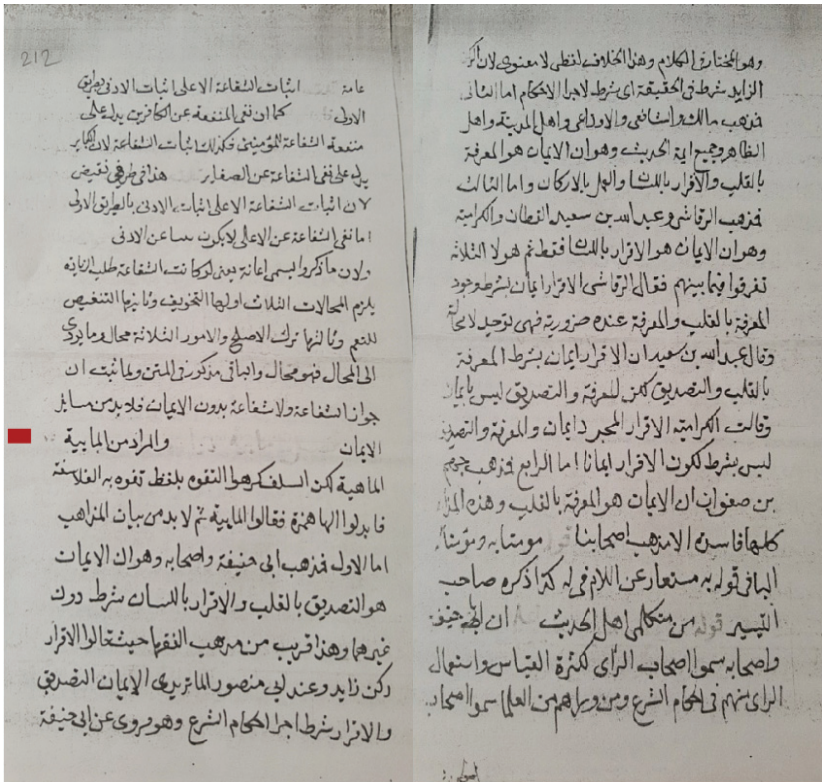 212
عامة اثبات الشفاعة الاعلى اثبات الادنى بطريق
الاولى كما ان نفى المنفعة عن الكافرين يدل على
منفعة الشفاعة المؤمنين فكذلك اثبات الشفاعة لان الكباير
يدل على نفى الشفاعة عن الصغاير هذا فى طرفى نقيض
لان اثبات الشفاعة الاعلى اثبات الادنى بالطريق الاولى
اما نفى الشفاعة عن الاعلى لا يكون عن الادنى
ولان ما ذكروا يسمى اعانة يعنى لو كانت الشفاعة طلب الزيادة
يلزم المحالات الثلاث اولها التخويف وثانيها التنغيص
للنعم وثالثها ترك الاصلح والامور الثلاثة محال وما يودى
الى المحال فهو محال والباقى مذكور فى المتن ولما ثبت ان
جواز الشفاعة ولا شفاعة بدون الايمان فلا بد من مسايل
الايمان والمراد من المايية
الماهية لكن السلف كرهوا التفوه بلفظ تفوه به الفلاسفة
فابدلوا الها همزة فقالوا المايية ثم لا بد من بيان المذاهب
اما الاول فمذهب ابى حنيفة واصحابه وهو ان الايمان
هو التصديق بالقلب والاقرار باللسان شرط دون
غيرهما وهذا قريب من مذهب الفقها حيث قالوا الاقرار
ركن زايد وعند ابى منصور الماتريدى الايمان التصديق
والاقرار شرط اجرا احكام الشرع وهو مروى عن ابى حنيفة
وهو المختار فى الكلام وهذا الخلاف لفظى لا معنوى لان
الزايد شرط فى الحقيقة اى شرط لاجرا الاحكام اما الثانى
فمذهب مالك والشافعى والاوزاعى واهل المدينة واهل
الظاهر وجميع ايمة الحديث وهو ان الايمان هو المعرفة
بالقلب والاقرار باللسان والعمل بالاركان واما الثالث
فمذهب الرقاشى وعبد الله بن سعيد القطان والكرامية
وهو ان الايمان هو الاقرار باللسان فقط ثم هولا الثلاثة
تفرقوا فيما بينهم فقال الرقاشى الاقرار ايمان بشرط وجود
المعرفة بالقلب والمعرفة عنده ضرورية فهى توجد لا محالة
وقال عبد الله بن سعيد ان الاقرار ايمان بشرط المعرفة
بالقلب والتصديق لكن المعرفة والتصديق ليس بايمان
وقالت الكرامية الاقرار المجرد ايمان والمعرفة والتصديق
ليس بشرط لكون الاقرار ايمانا اما الرابع فمذهب جهم
بن صفوان ان الايمان هو المعرفة بالقلب وهذه
كلها فاسدة الا مذهب اصحابنا قوله مومنا به
البافى قوله به مستعار عن اللام فى له كذا ذكره صاحب
التيسير قوله من متكلمى اهل الحديث ان ابى حنيفة
واصحابه سموا اصحاب الراى لكثرة القياس واستعمال
الراى منهم فى احكام الشرع ومن وراهم من العلما سموا اصحاب